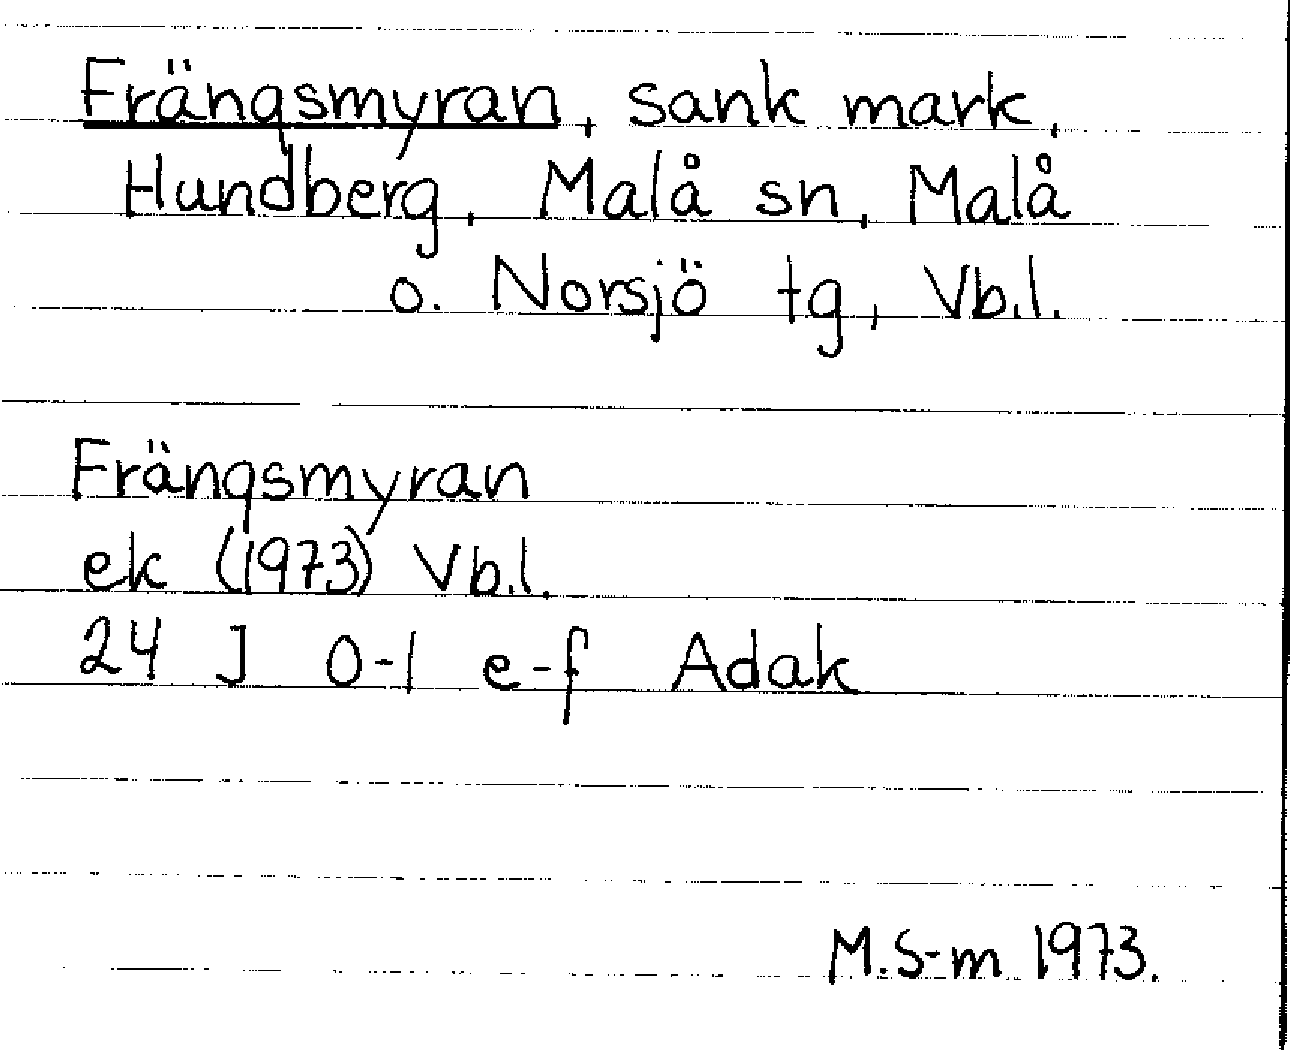 Frängsmyran, sank mark,
Hundberg, Malå sn, Malå
o. Norsjö tg, Vb.l.
Frängsmyran
ek (1973) Vb.l.
24 J 0-1 e-f Adak
M.S-m 1973.